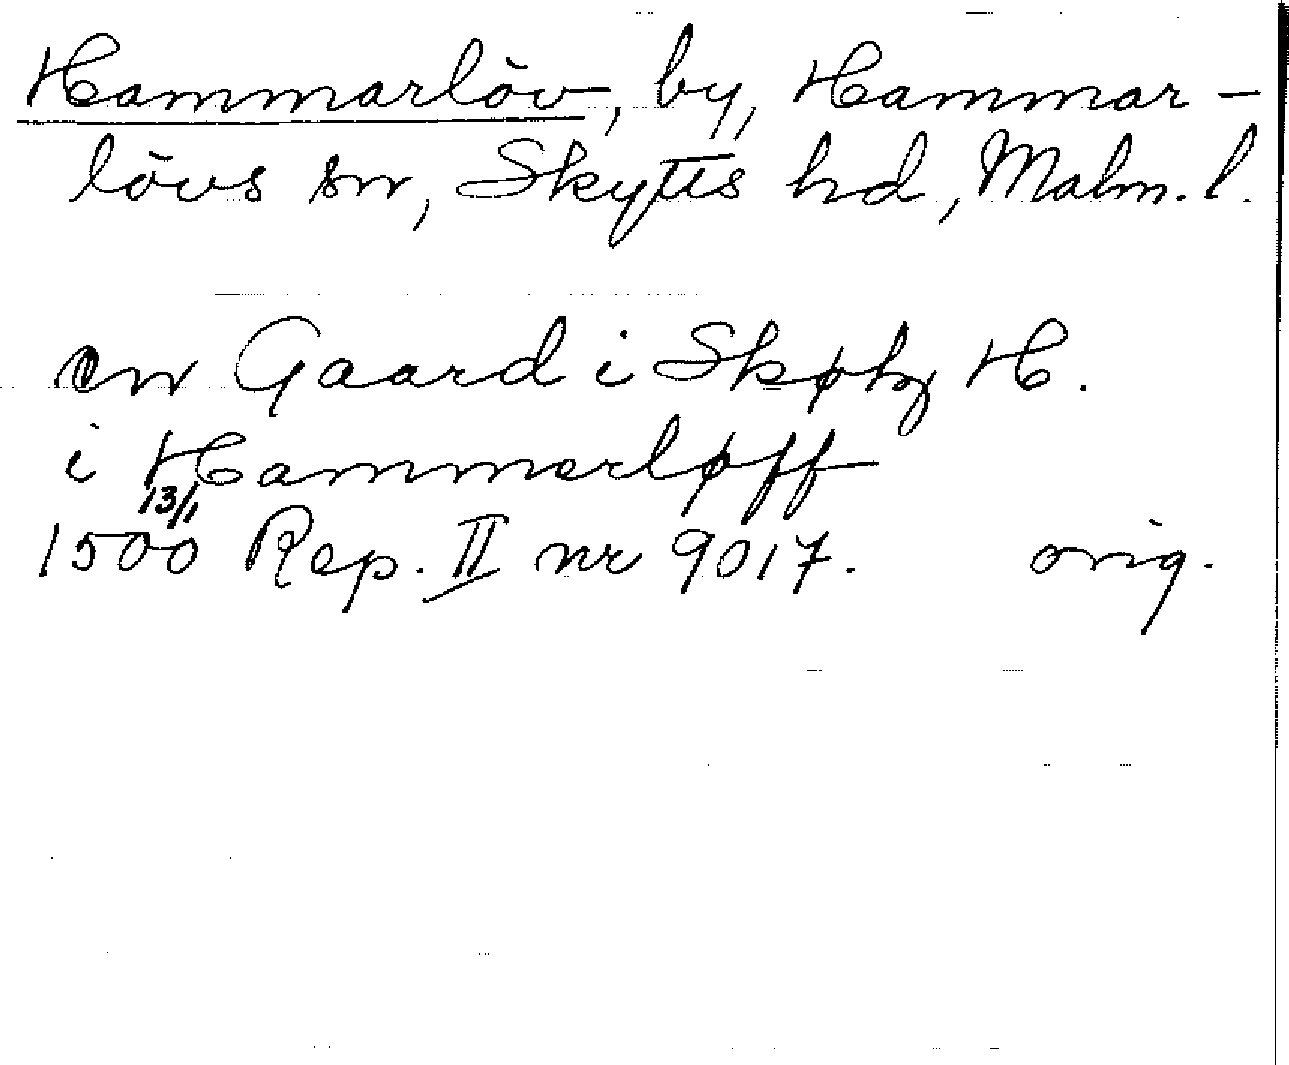 Hammarlöv, by, Hammar-
lövs sn, Skytts hd, Malm. l.
en Gaard i Skøtz H.
i Hammerløff
13/1
1500 Rep. II nr 9017. orig.